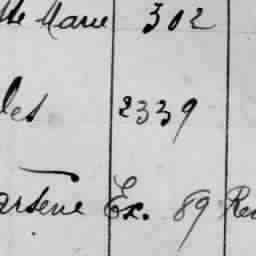 Ste Marie 302
les 2339
arsene Ex. 89 Re